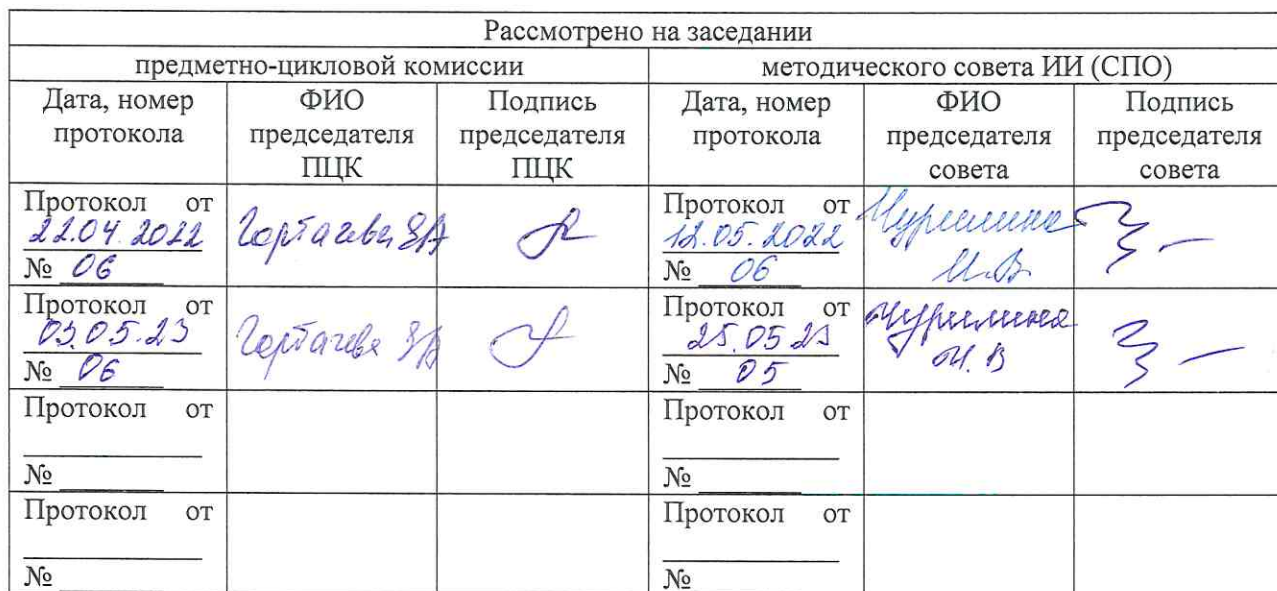 Рассмотрено на заседании
предметно-цикловой комиссии
методического совета ИИ (СПО)
Дата, номер протокола
ФИО председателя ПЦК
Подпись председателя ПЦК
Дата, номер протокола
ФИО председателя совета
Подпись председателя совета
Протокол от
22.04.2022
№ 06
Протокол от
12.05.2022
№ 06
Чурилина
И.В.
Протокол от
03.05.23
№ 06
Протокол от
25.05.23
№ 05
Чурилина
И.В
Протокол от
№
Протокол от
№
Протокол от
№
Протокол от
№